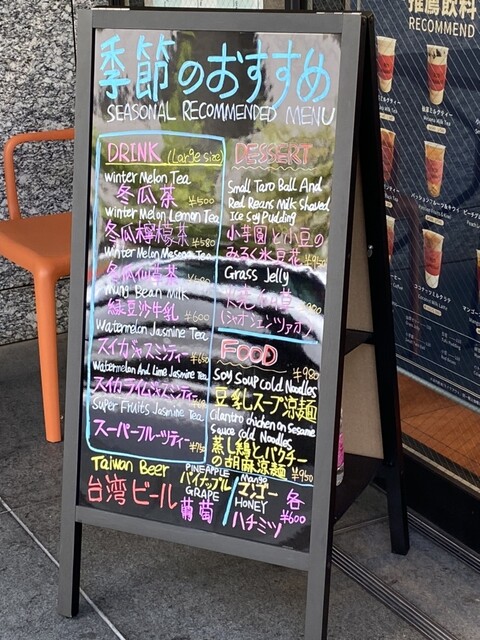 季節のおすすめ
SEASONAL RECOMMENDED MENU
DRINK (Large size)
Winter Melon Tea
冬瓜茶 ¥500
Winter Melon Lemon Tea
冬瓜檸檬茶 ¥580
Winter Melon
冬瓜仙草茶
Mung Bean Milk
緑豆沙牛乳 ¥600
Watermelon Jasmine Tea
スイカジャスミンティー ¥650
Watermelon And Lime Jasmine Tea
スイカライムジャスミンティー
Super Fruits Jasmine Tea
スーパーフルーツティー ¥750
DESSERT
Small Taro Ball And
Red Beans Milk Shaved
Ice Soy Pudding
小芋圓と小豆の
みるく氷豆花 ¥950
Grass Jelly
(シャオシェンツァオ)
FOOD
¥980
Soy Soup Cold Noodles
豆乳スープ涼麺
Cilantro chicken on sesame
sauce cold Noodles
蒸し鶏とパクチー
の胡麻涼麺 ¥950
Taiwan Beer
台湾ビール
PINEAPPLE
パイナップル
GRAPE
葡萄
Mango
マンゴー
HONEY
ハチミツ
各
¥600
推薦飲料
RECOMMEND